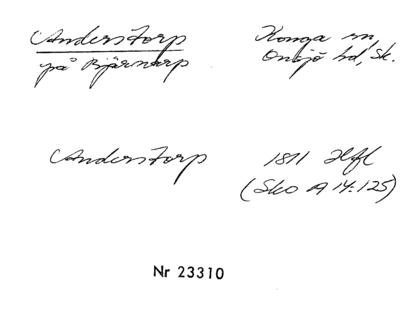 Anderstorp
på Bjärnarp
Konga sn,
Onsjö hd, Sk.
Anderstorp
1811 Hfl
(Sko A 14:125)
Nr 23310